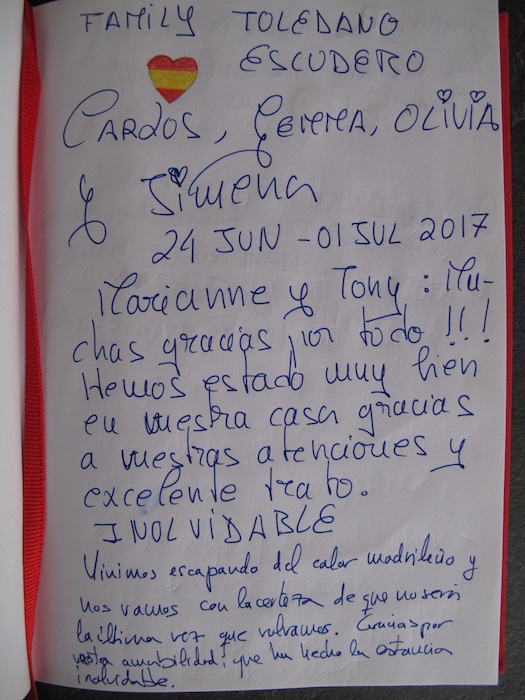 FAMILY TOLEDANO
ESCUDERO
CARLOS, GEMMA, OLIVIA
y Jimena
24 JUN - 01 JUL 2017
Marianne y Tony: Mu-
chas gracias por todo !!!
Hemos estado muy bien
en vuestra casa gracias
a vuestras atenciones y
excelente trato.
INOLVIDABLE
Vinimos escapando del calor madrileño y
nos vamos con la certeza de que no será
la última vez que volvamos. Gracias por
vuestra amabilidad; que ha hecho la estancia
inolvidable.